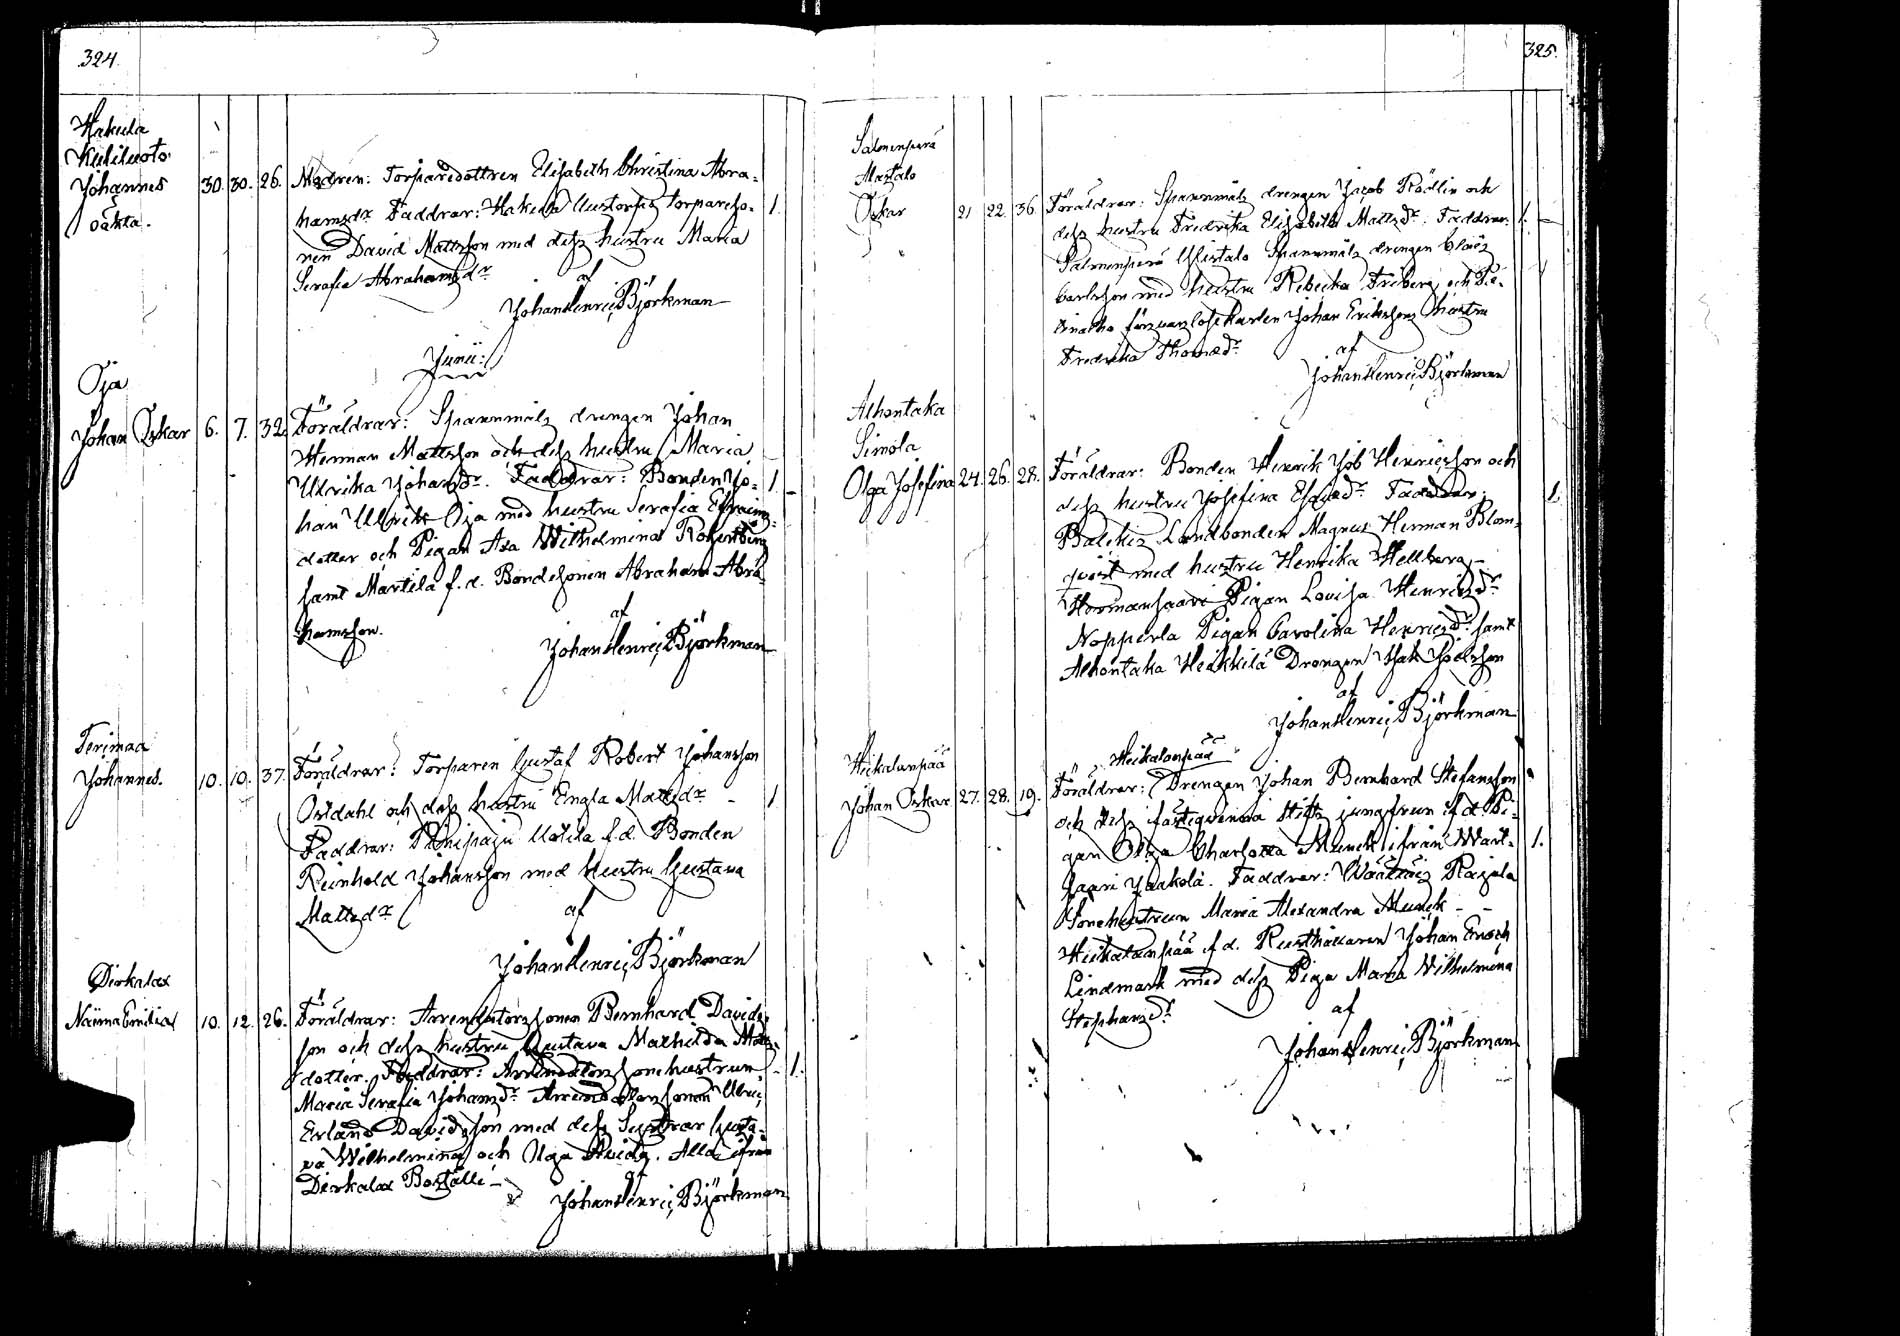 324.
Hakula
Kuliluoto
Johannes 30. 30. 26. Modren: Torparedottren Elisabeth Christina Abra-
oäkta.
hamsdr Faddrar: Hakula Uustorp Torpareso- 1.
nen David Mattsson med dess hustru Maria
Serafia Abrahamsdr
af
Johan Henric Björkman
Junii:
Oja
Johan Oskar 6. 7. 32. Föräldrar: Spannmåls drengen Johan
Herman Mattsson och dess hustru Maria
Ulrika Johansdr. Faddrar: Bonden Jo- 1.
han Ulrik Oja med hustru Serafia Efraims-
dotter och Pigan Ada Wilhelmina
samt Martila f.d. Bondesonen Abraham Abra-
hamsson.
af
Johan Henric Björkman
Terimaa
Johannes. 10. 10. 37. Föräldrar: Torparen Gustaf Robert Johansson
Östdahl och dess hustru Engla Mattsdr - 1
Faddrar: Uotila f.d. Bonden
Reinhold Johansson med hustru Gustava
Mattsdr
af
Johan Henric Björkman
Dirkalax
Naima Emilia 10. 12. 26. Föräldrar: Arrendatorssonen Bernhard Davids-
son och dess hustru Gustava Mathilda Matts-
dotter. Faddrar: Arrendators sonehustrun 1.
Maria Serafia Johansdr Arrendatorssonen Ulric
Erland Davidsson med dess Systrar Gusta-
va Wilhelmina och Olga Davids. Alla ifrån
Dirkalax Boställe -
af
Johan Henric Björkman
325.
Salmenperä
Alastalo
Oskar 21 22. 36. Föräldrar: Spannmåls drengen Jacob Rödlin och 1.
dess hustru Fredrika Elisabeth Mattsdr. Faddrar:
Salmenperä Ylistalo Spannmåls drengen Claës
Carlsson med hustru Rebecka Friberg och Pa-
försvarslöse karlen Johan Erikssons hustru
Fredrika Thomasdr
af
Johan Henric Björkman
Alhontaka
Simola
Olga Josefina 24. 26. 28. Föräldrar: Bonden Henrik Job Henricsson och
dess hustru Josefina Esaiedr. Faddrar: 1.
Landbonden Magnus Herman Blom-
qvist med hustru Henrika Hellberg -
Hermansaari Pigan Lovisa Henricsdr
Nopperla Pigan Carolina Henricsdr samt
Alhontaka Heikkilä Drengen Isak Joelsson
af
Johan Henric Björkman
Heikolanpää
Heikolanpää
Johan Oskar 27. 28. 19. Föräldrar: Drengen Johan Bernhard Stefansson
och dess fästeqvinna Stifts jungfrun f.d. Pi-
gan Olga Charlotta Munck ifrån Wart- 1.
saari Jaakola. Faddrar: Rajala
Sonehustrun Maria Alexandra Munck - -
Heikolanpää f.d. Rusthållaren Johan Enoch
Lindmark med dess Piga Maria Wilhelmina
Stephansdr
af
Johan Henric Björkman